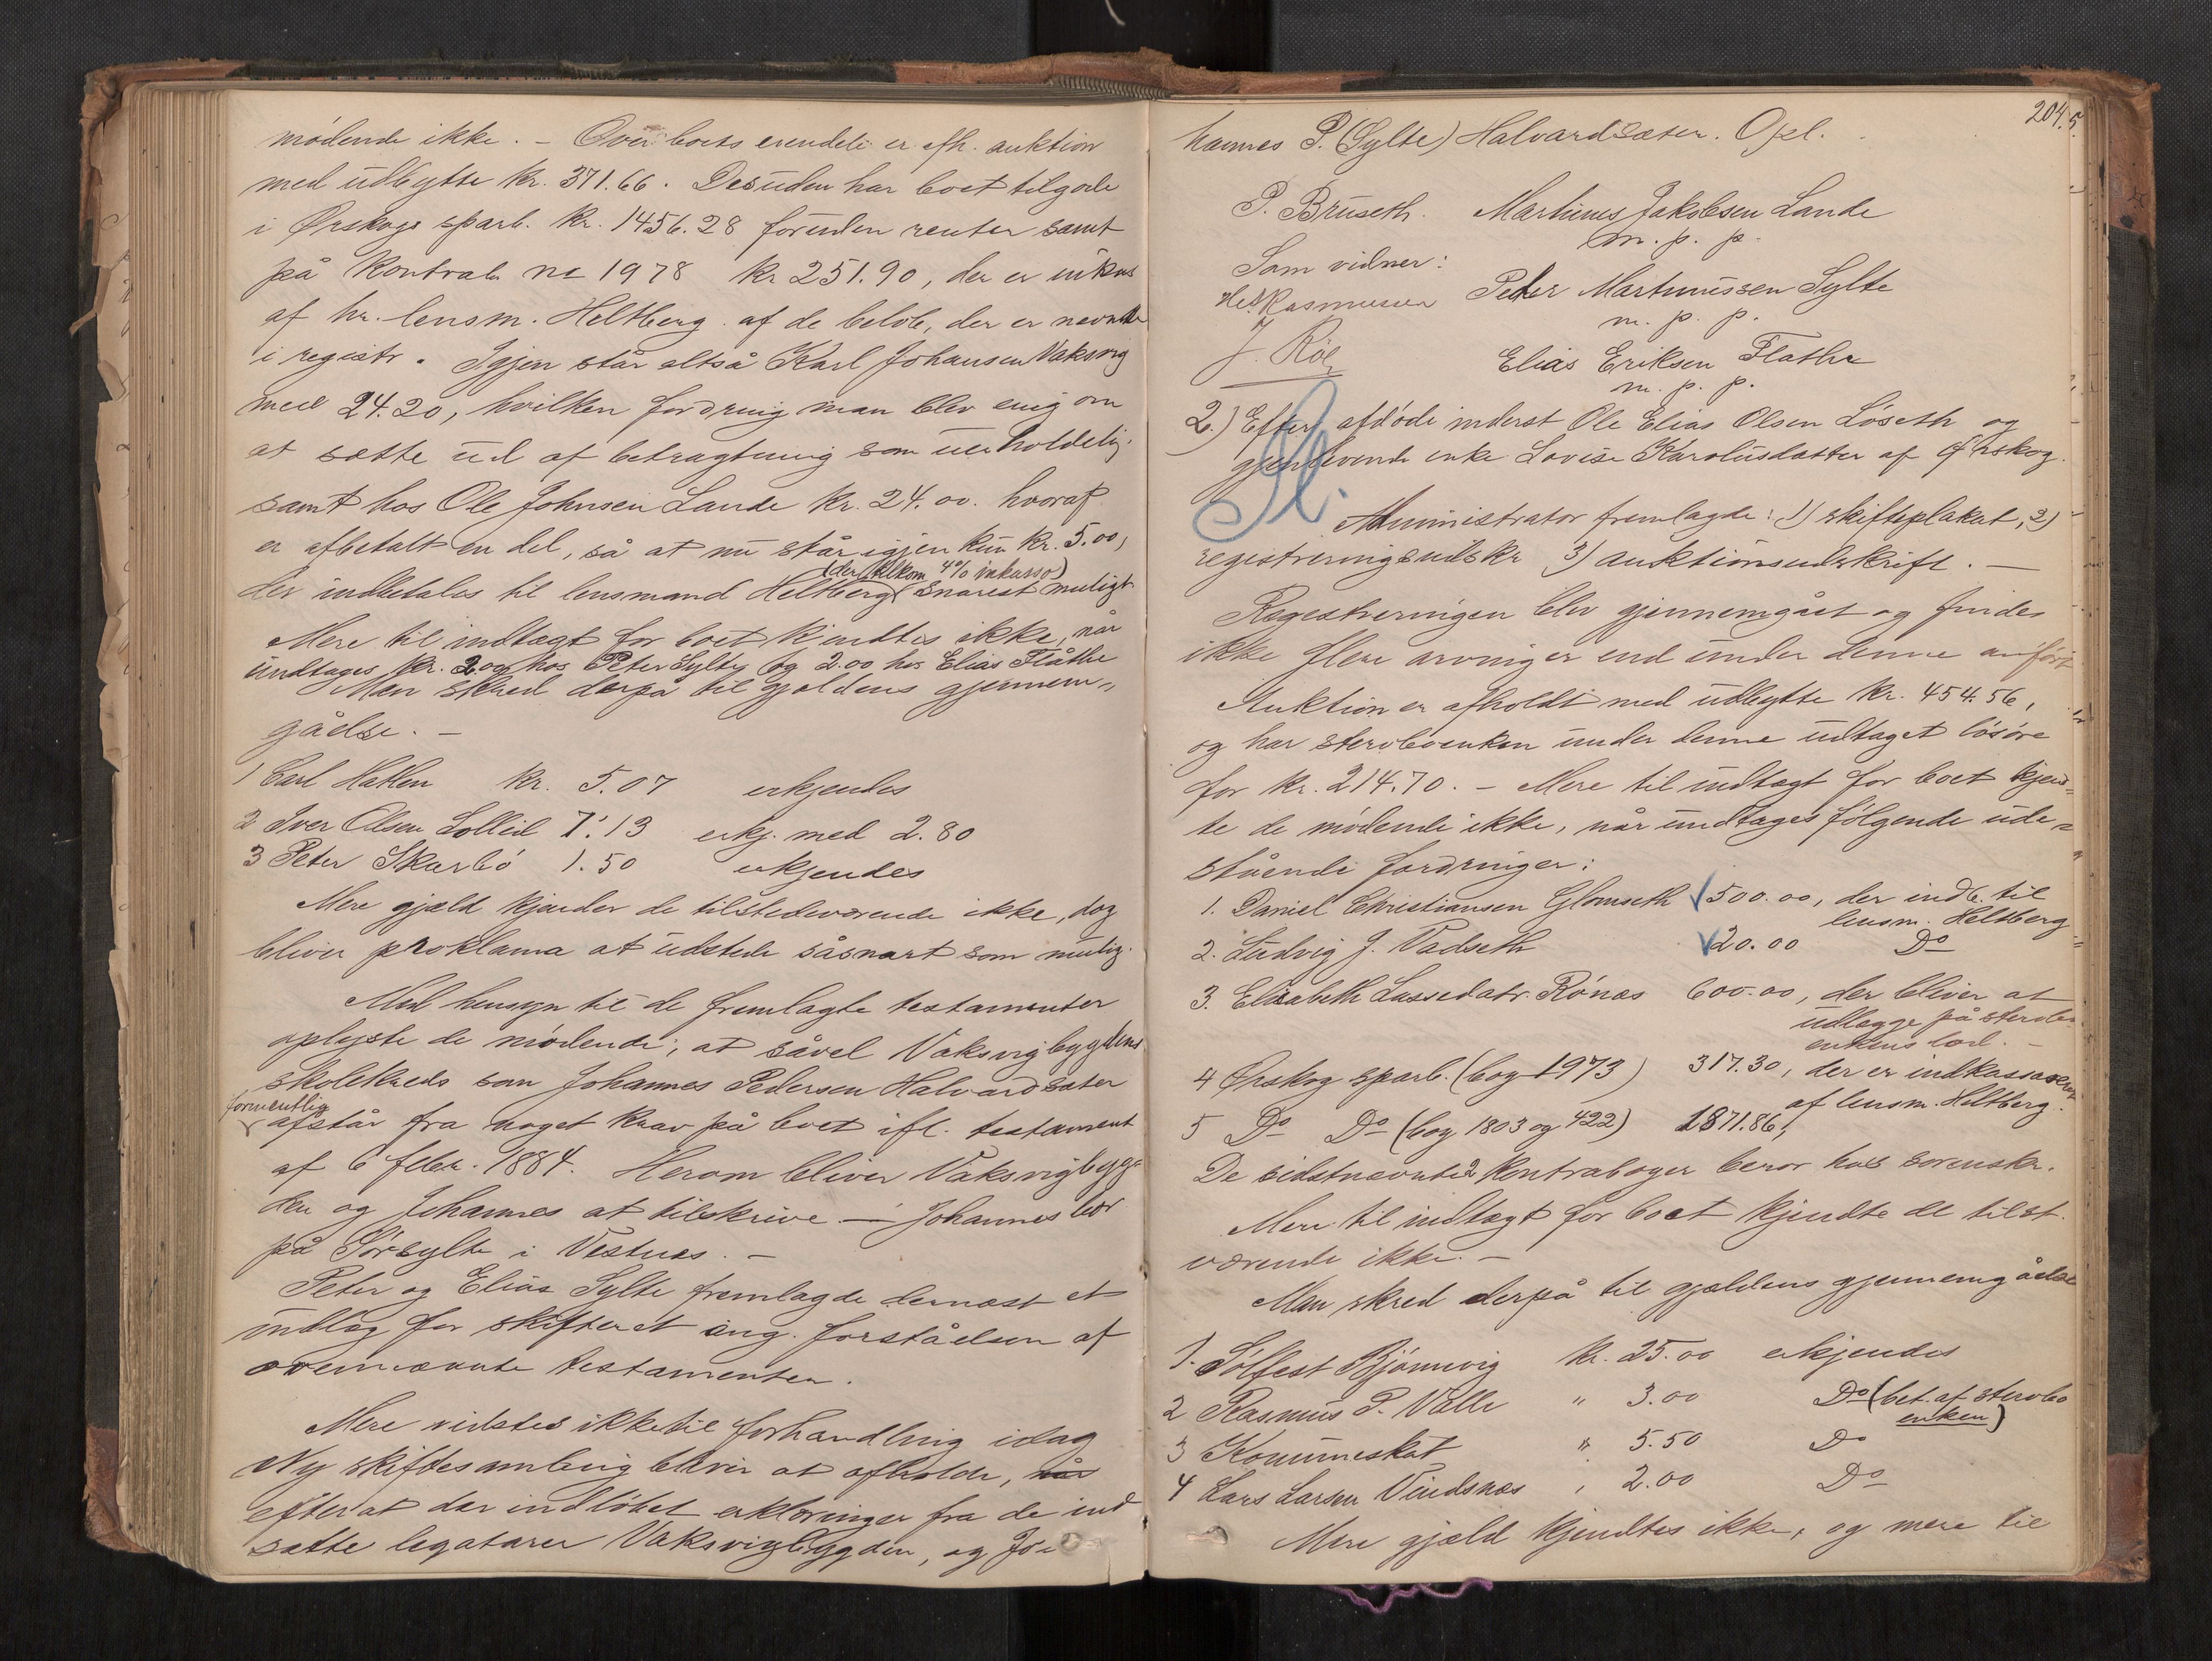 mödende ikke. – Over boets eiendele er afh. auktion
med udbytte kr. 371.66. Desuden har boet tilgode
i Ørskogs sparb. kr. 1456.28 foruden renter samt
på kontrab. no 1978 kr 251.90, der er inkas
af hr. lensm. Heltberg af de belöb, der er nævnte
i registr. Igjen står altså Karl Johansen Vaksvig
med 24.20, hvilken fordring man blev enig om
at sætte ud af betragtning som uerholdelig.
samt hos Ole Johnsen Lande kr. 24.00. hvoraf
er afbetalt en del, så at nu står igjen kun kr. 5.00,
(der tilkom. 4% inkasso)
der indbetales til lensmand Heltberg snarest muligt.
Mere til indtægt for boet kjendtes ikke, når
undtages kr. 2.00 hos Peter Sylte og 2.00 hos Elias Flåthe
Man skred derpå til gjældens gjennem-
gåelse. –
1 Carl Hatlen kr. 5.07 erkjendes
2 Iver Olsen Solleid 7.13 erkj. med 2.80
3 Peter Skarbö 1.50 erkjendes
Mere gjæld kjender de tilstedeværende ikke, dog
bliver proklama at udstede såsnart som mulig.
Med hensyn til de fremlagte testamenter
oplyste de mödende, at såvel Vaksvigbygdens
skolekreds som Johannes Pedersen Halvardsæter
formentlig
afstår fra noget krav på boet ifl. testament
af 6 febr. 1884. Herom bliver Vaksvigbygg-
den og Johannes at tilskrive – Johannes bor
på Sörsylte i Vestnes. –
Peter og Elias Sylte fremlagde dernæst et
indlæg for skifteret ang. forståelsen af
ovennævnte testamenter.
Mere vidstes ikke til forhandling idag
Ny skiftesamling bliver at afholde, når
efter at der indlöbet erklæringer fra de ind
satte legatarer Vaksvigbygden, og Jo-
204.5.
hannes P. (Sylte) Halvardsæter. Opl.
P. Bruseth. Martinus Jakobsen Lande
m. p. p.
Som vidner:
Rasmussen Peder Martinussen Sylte
m. p. p.
J. Röe
Elias Eriksen Flathe
m. p. p.
2.) Efter afdöde inderst Ole Elias Olsen Löseth og
gjenlevende enke Lovise Karolusdatter af Ørskog.
Sl.
Administrator fremlagde: 1) skifteplakat, 2)
registreringsudskr 3) auktionsudskrift. –
Registreringen blev gjennemgået og findes
ikke flere arvinger end under denne anfört
Auktion er afholdt med udbytte kr. 454.56,
og har stervboenken under denne udtaget lösöre
for kr. 214.70. – Mere til indtægt for boet kjend-
te de mödende ikke, når undtages fölgende ude-
stående fordringer:
1. Daniel Christiansen Glomseth 500.00, der indb. til
lensm. Heltberg
2. Ludvig J. Vadseth 20.00 Do
3. Elisabeth Lassedatr. Rönæs 600.00, der bliver at
udlægge på stervbo
enkens lod. –
4 Ørskog sparb. (bog 1973) 317.30, der er indkasseret
af lensm. Heltberg.
5 Do Do (bog 1803 og 422) 1871.86,
De sidstnævnte 2 kontraboger beror hos sorenskr.
Mere til indtægt for boet kjendte de tilst.
værende ikke. –
Man skred derpå til gjældens gjennemgåelse
1. Sölfest Björnevig kr. 25.00 erkjendes
2 Rasmus P. Valle " 3.00 Do (bet. af stervbo
enken)
3 Komuneskat " 5.50 Do
4 Lars Larsen Vindsnæs , 2.00 Do
Mere gjæld kjendtes ikke, og mere til